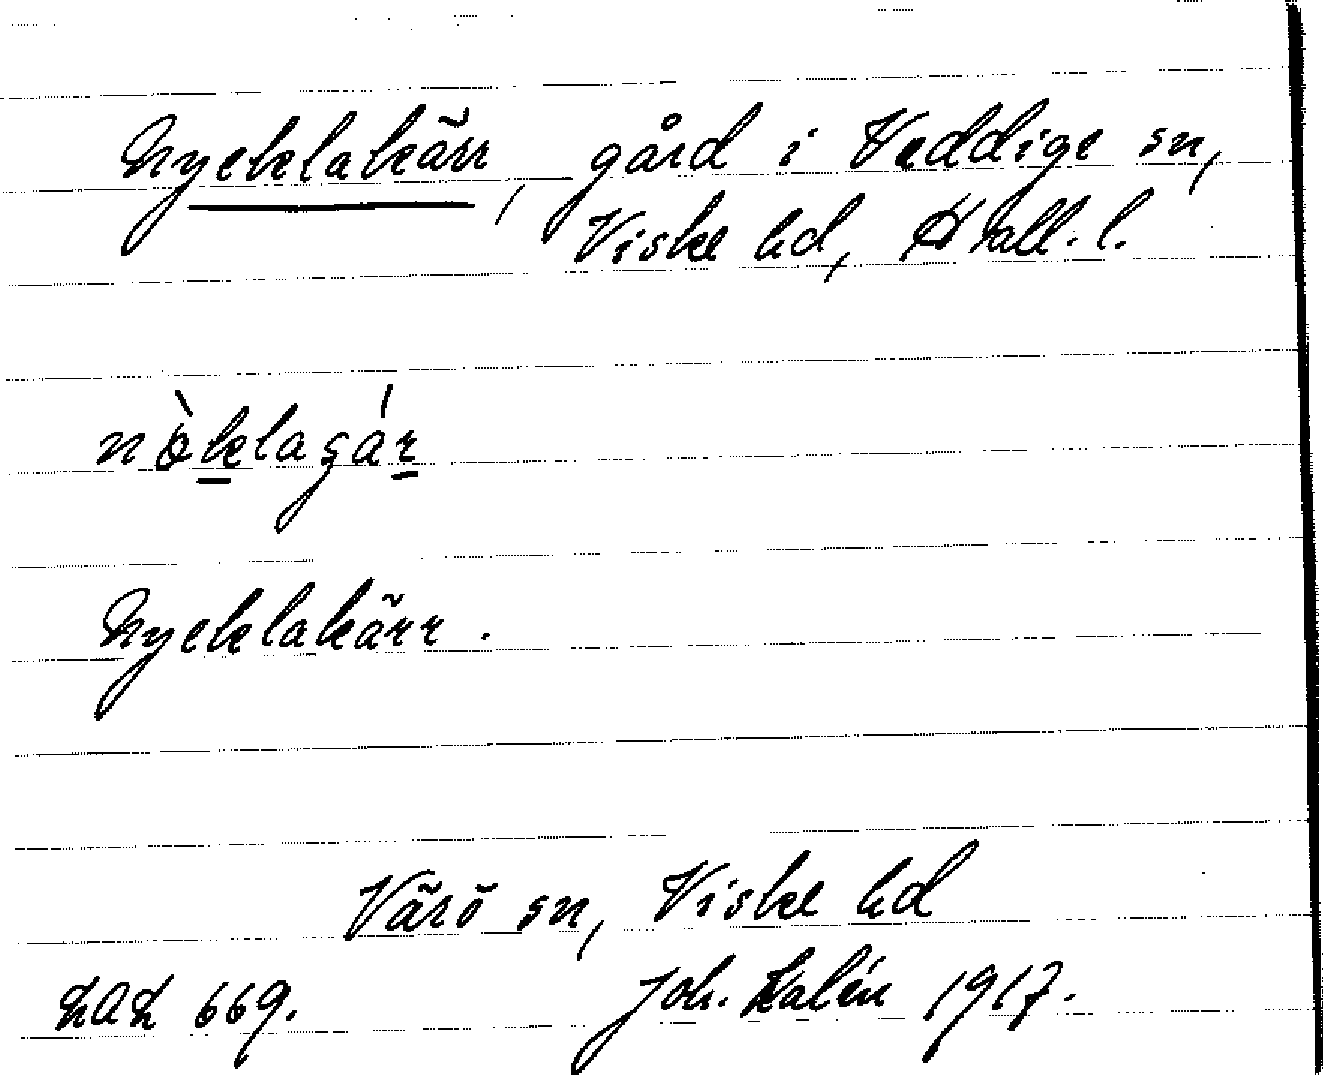 Nycklakärr, gård i Veddige sn,
Viske hd, Hall. l.
nò̀klagár
Nycklakärr.
Värö sn, Viske hd
669. Joh. Kalén 1917.